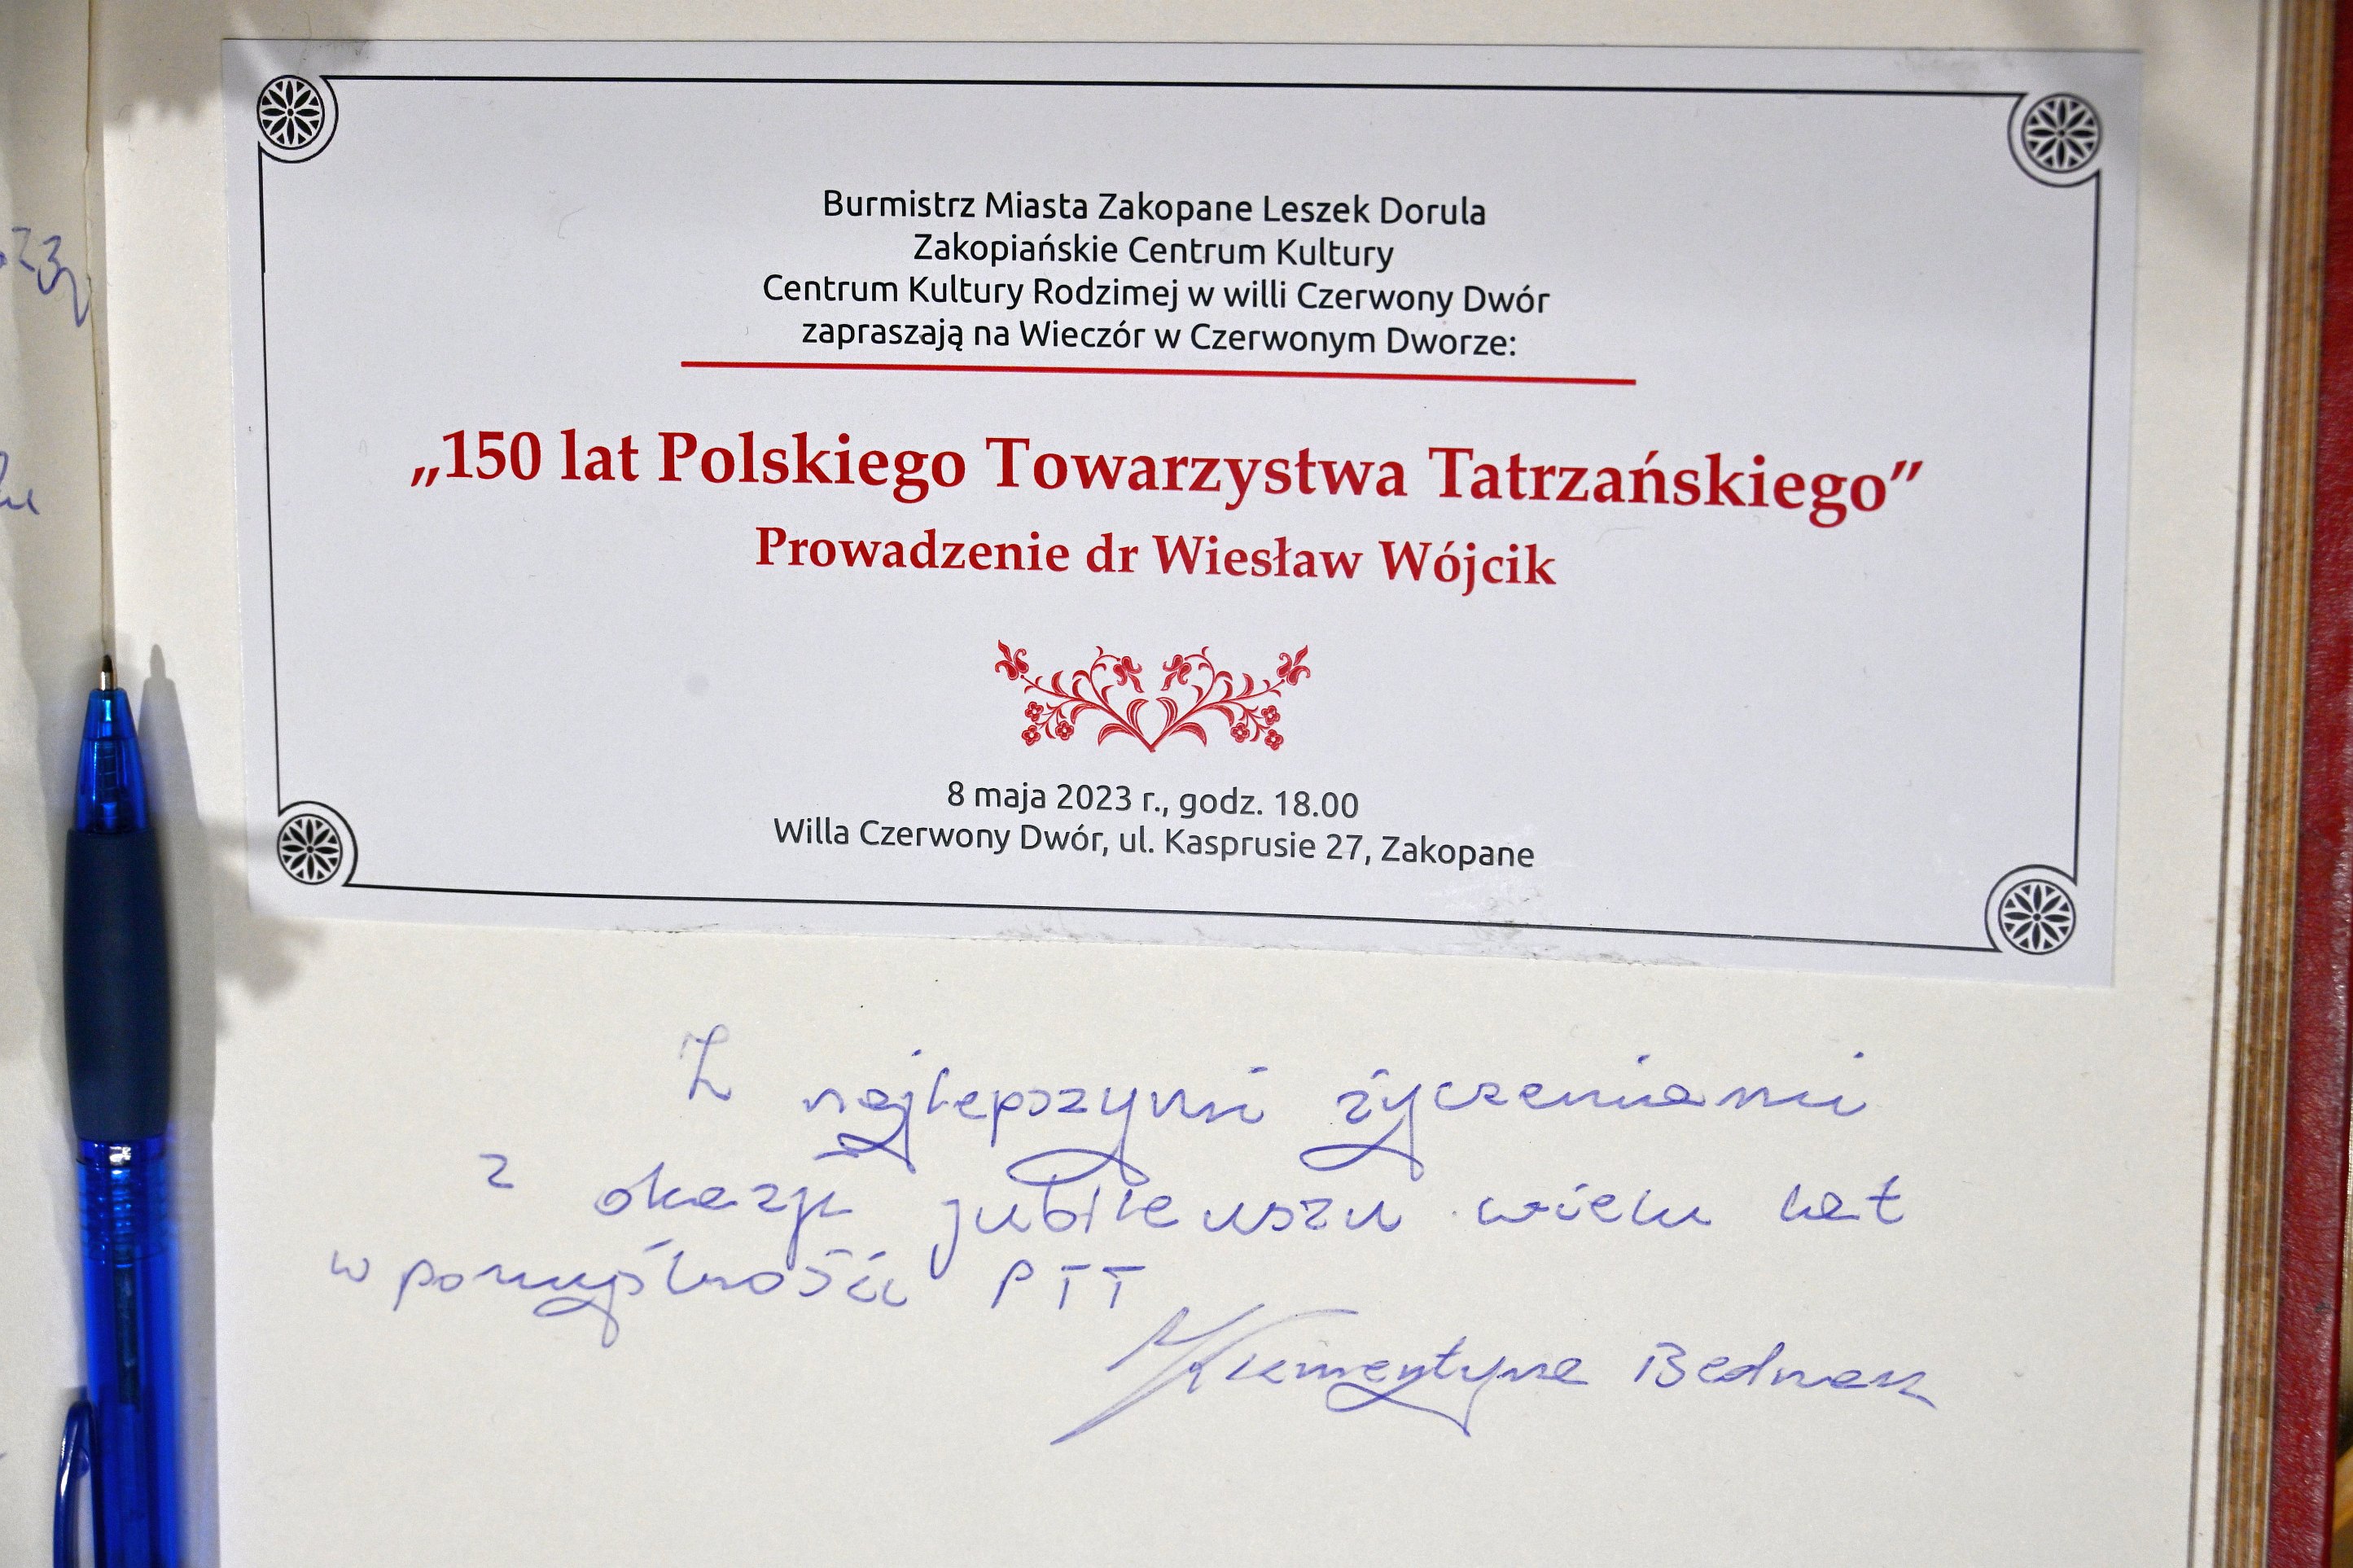 Burmistrz Miasta Zakopane Leszek Dorula
Zakopiańskie Centrum Kultury
Centrum Kultury Rodzimej w willi Czerwony Dwór
zapraszają na Wieczór w Czerwonym Dworze:
„150 lat Polskiego Towarzystwa Tatrzańskiego”
Prowadzenie dr Wiesław Wójcik
8 maja 2023 r., godz. 18.00
Willa Czerwony Dwór, ul. Kasprusie 27, Zakopane
Z najlepszymi życzeniami
z okazji jubileuszu wielu lat
w pomyślności PTT
Klementyna Bednarz